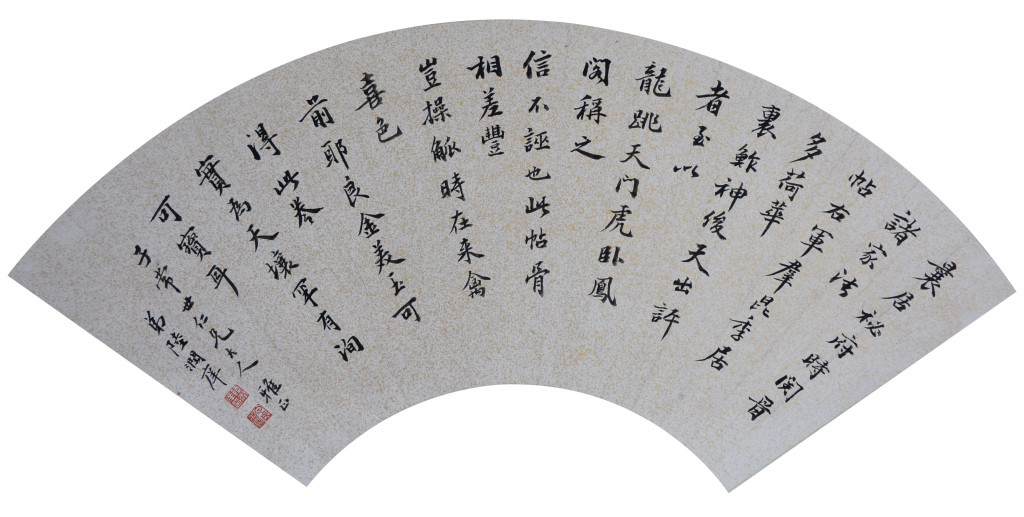 曩居祕府時閱晉
諸家法
帖右軍羣昆季居
多荷華
裏鮓神後天出評
者至以
龍跳天门虎臥鳳
閣稱之
信不誣也此帖骨
相差豐
豈操觚時在来禽
喜色
前耶良金美玉可
得此卷
實為天壤罕有洵
可寶耳
子常世仁兄大人雅正
弟陸潤庠